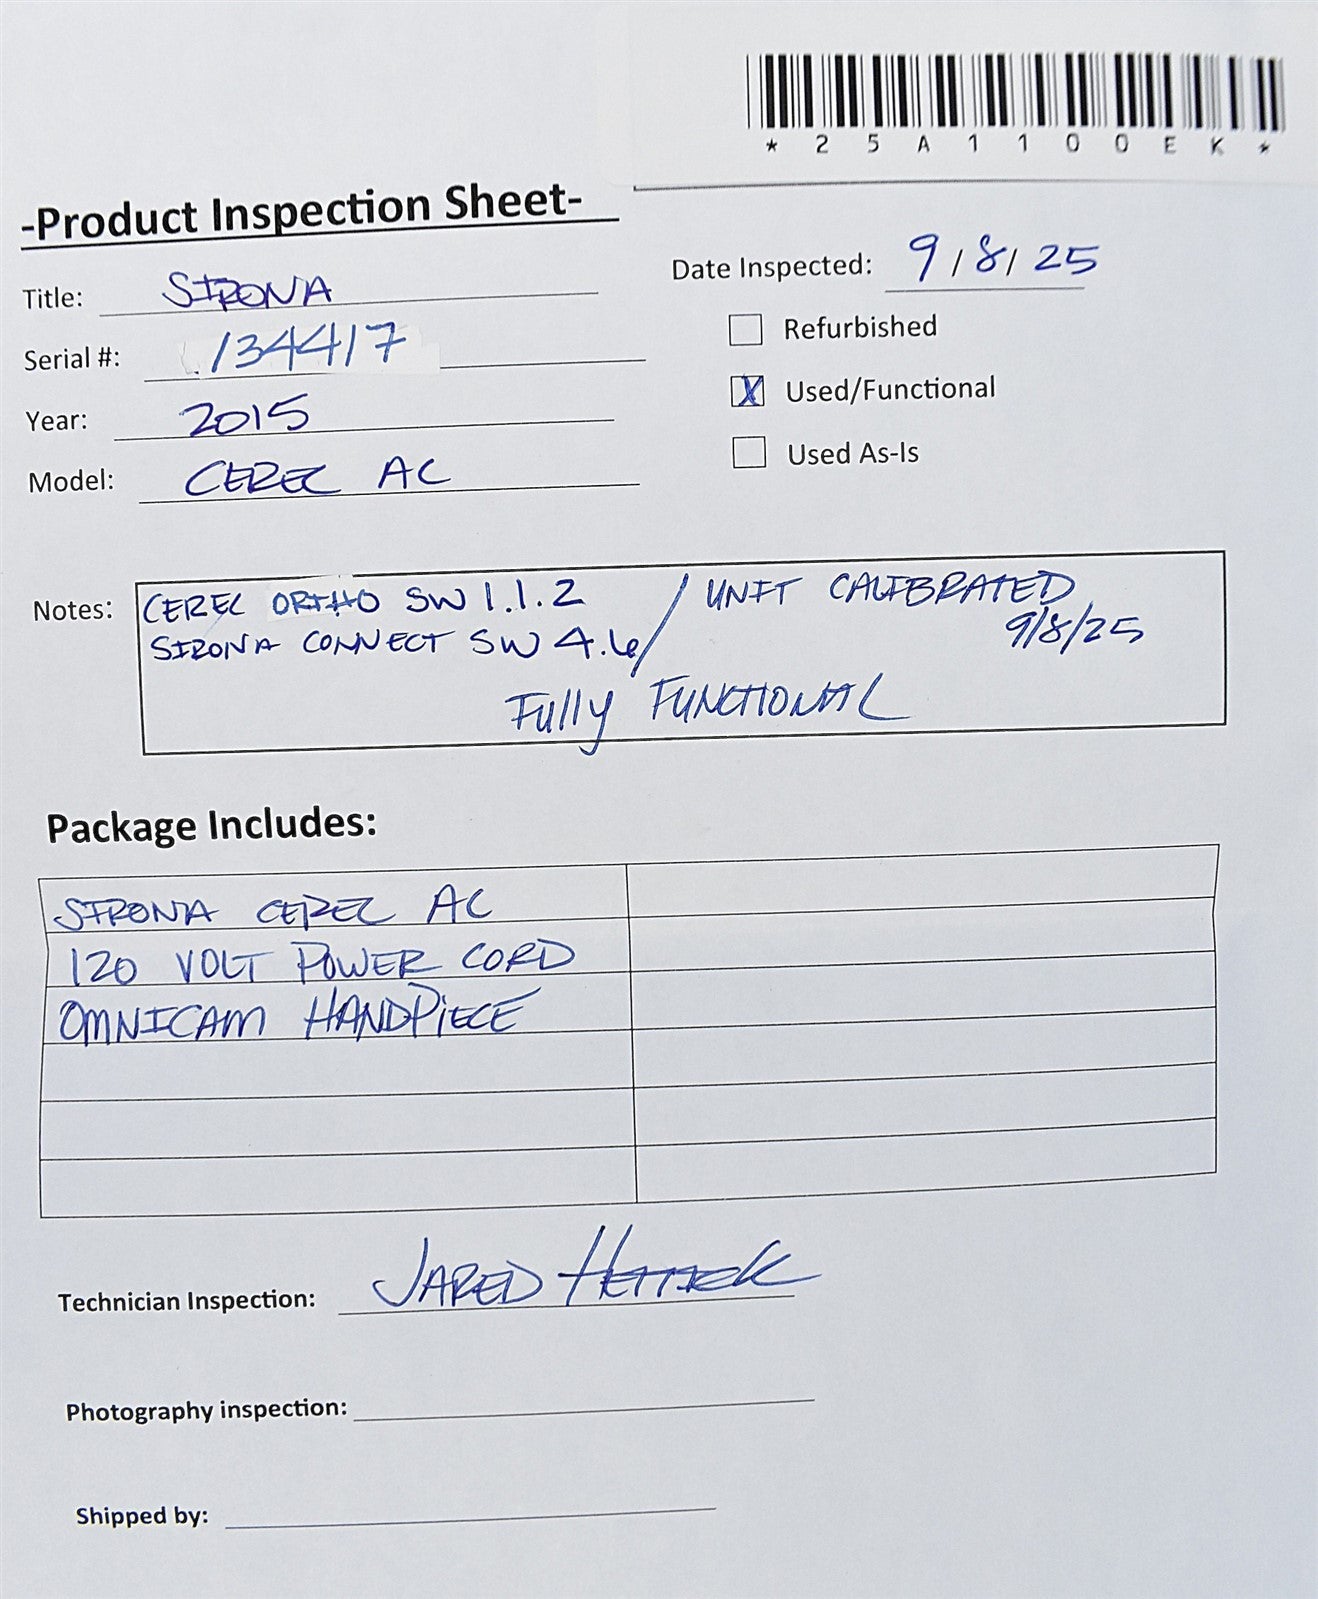 * 2 5 A 1 1 0 0 E K *
-Product Inspection Sheet-
Title: SIRONA
Date Inspected: 9/8/25
Serial #: 134417
Refurbished
Year: 2015
X Used/Functional
Model: CEREC AC
Used As-Is
Notes: CEREC ORTHO SW 1.1.2 / UNIT CALIBRATED
SIRONA CONNECT SW 4.6 / 9/8/25
Fully FUNCTIONAL
Package Includes:
SIRONA CEREC AC
120 VOLT POWER CORD
OMNICAM HANDPIECE
Technician Inspection: JARED
Photography inspection:
Shipped by: